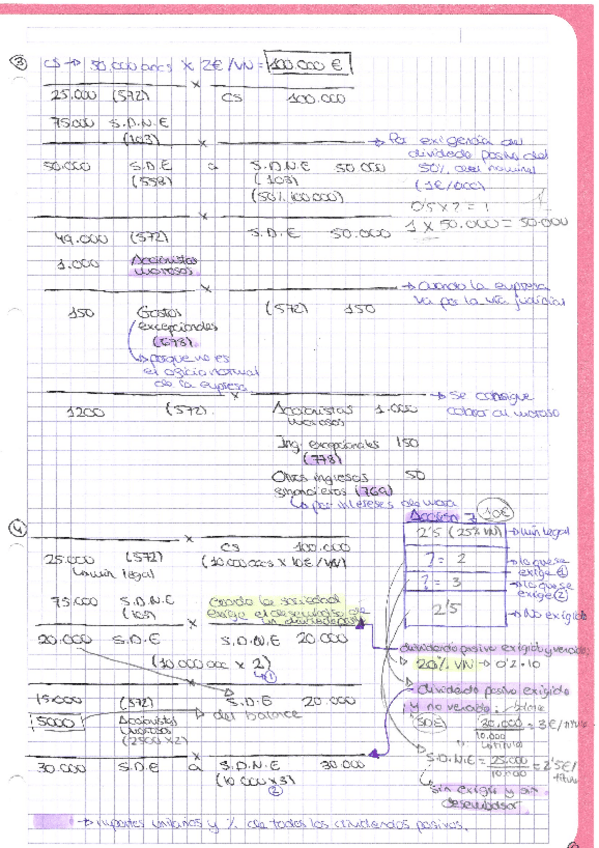 ③ CS → 50.000 accs × 2€/VN = 100.000 €
25.000 (572) CS 100.000
75.000 S.D.N.E
(103)
→ Por exigencia del
dividendo pasivo del
50% del nominal
(1€/acc)
0'5 × 2 = 1
1 × 50.000 = 50.000
50.000 S.D.E a S.D.N.E 50.000
(558) (103)
(50% 100.000)
49.000 (572) S.D.E 50.000
1.000 Accionistas
morosos
→ Cuando la empresa
va por la vía judicial
150 Gastos (572) 150
excepcionales
(678)
→ porque no es
normal
de la empresa
→ Se consigue
cobrar al moroso
1200 (572) Accionistas 1.000
morosos
Ing. excepcionales 150
(778)
Otros ingresos 50
financieros (769)
↳ por intereses de mora
④ CS 100.000
25.000 (572) (10.000 accs × 10€/VN)
↳ mín legal
75.000 S.D.N.E
(103)
cuando la sociedad
exige el desembolso de
un dividendo pasivo
20.000 S.D.E S.D.N.E 20.000
(10 000 acc × 2)
↳ ①
15.000 (572) S.D.E 20.000
5000 Accionistas → del balance
morosos
(2500 × 2)
30.000 S.D.E a S.D.N.E 30.000
(10 000 × 3)
②
Acción 10€
2'5 (25% VN) → mín legal
? = 2 → lo que se
exige ①
? = 3 → lo que se
exige ②
2'5 → No exigido
dividendo pasivo exigido y vencido:
20% VN → 0'2 · 10
dividendo pasivo exigido
y no vencido: balance
(SDE) 30.000 = 3€/título
10.000
títulos
S.D.N.E = 25.000 = 2'5€/
10.000 título
↳ sin exigir y sin
desembolsar
→ importes unitarios y % de todos los dividendos pasivos.